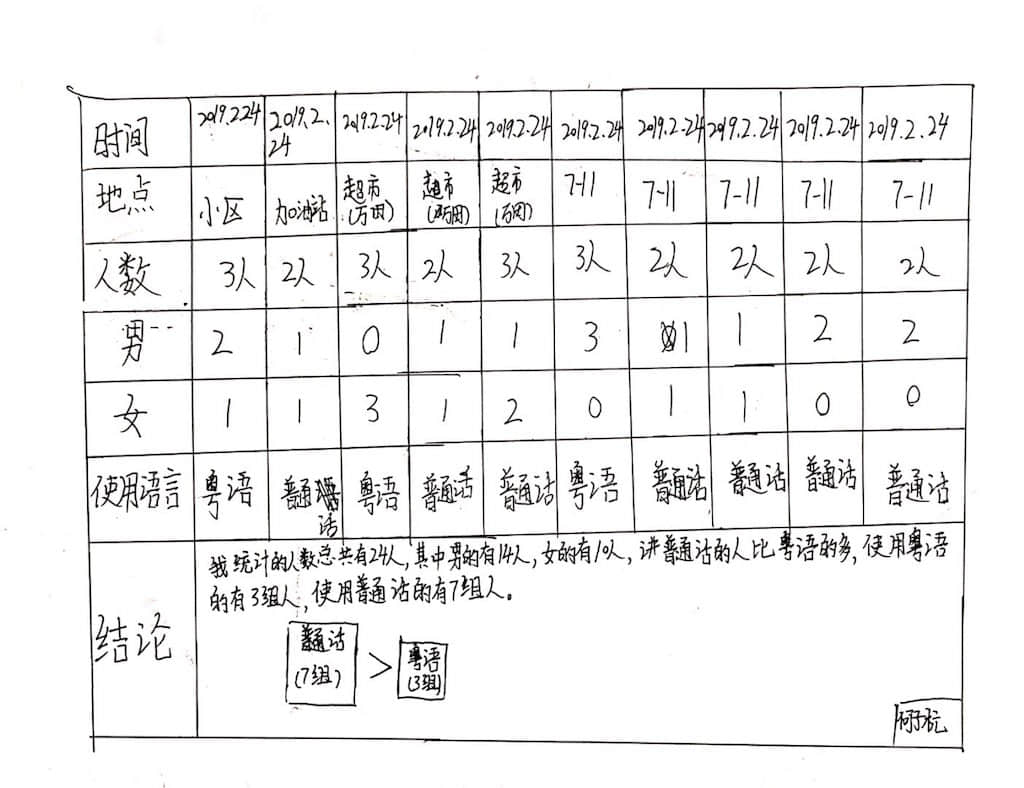 时间 2019.2.24 2019.2.24 2019.2.24 2019.2.24 2019.2.24 2019.2.24 2019.2.24 2019.2.24 2019.2.24 2019.2.24
地点 小区 加油站 超市(万田) 超市(万田) 超市(万田) 7-11 7-11 7-11 7-11 7-11
人数 3人 2人 3人 2人 3人 3人 2人 2人 2人 2人
男 2 1 0 1 1 3 1 1 2 2
女 1 1 3 1 2 0 1 1 0 0
使用语言 粤语 普通话 粤语 普通话 普通话 粤语 普通话 普通话 普通话 普通话
结论
我统计的人数总共有24人,其中男的有14人,女的有10人,讲普通话的人比粤语的多,使用粤语
的有3组人,使用普通话的有7组人。
普通话 > 粤语
(7组) (3组)